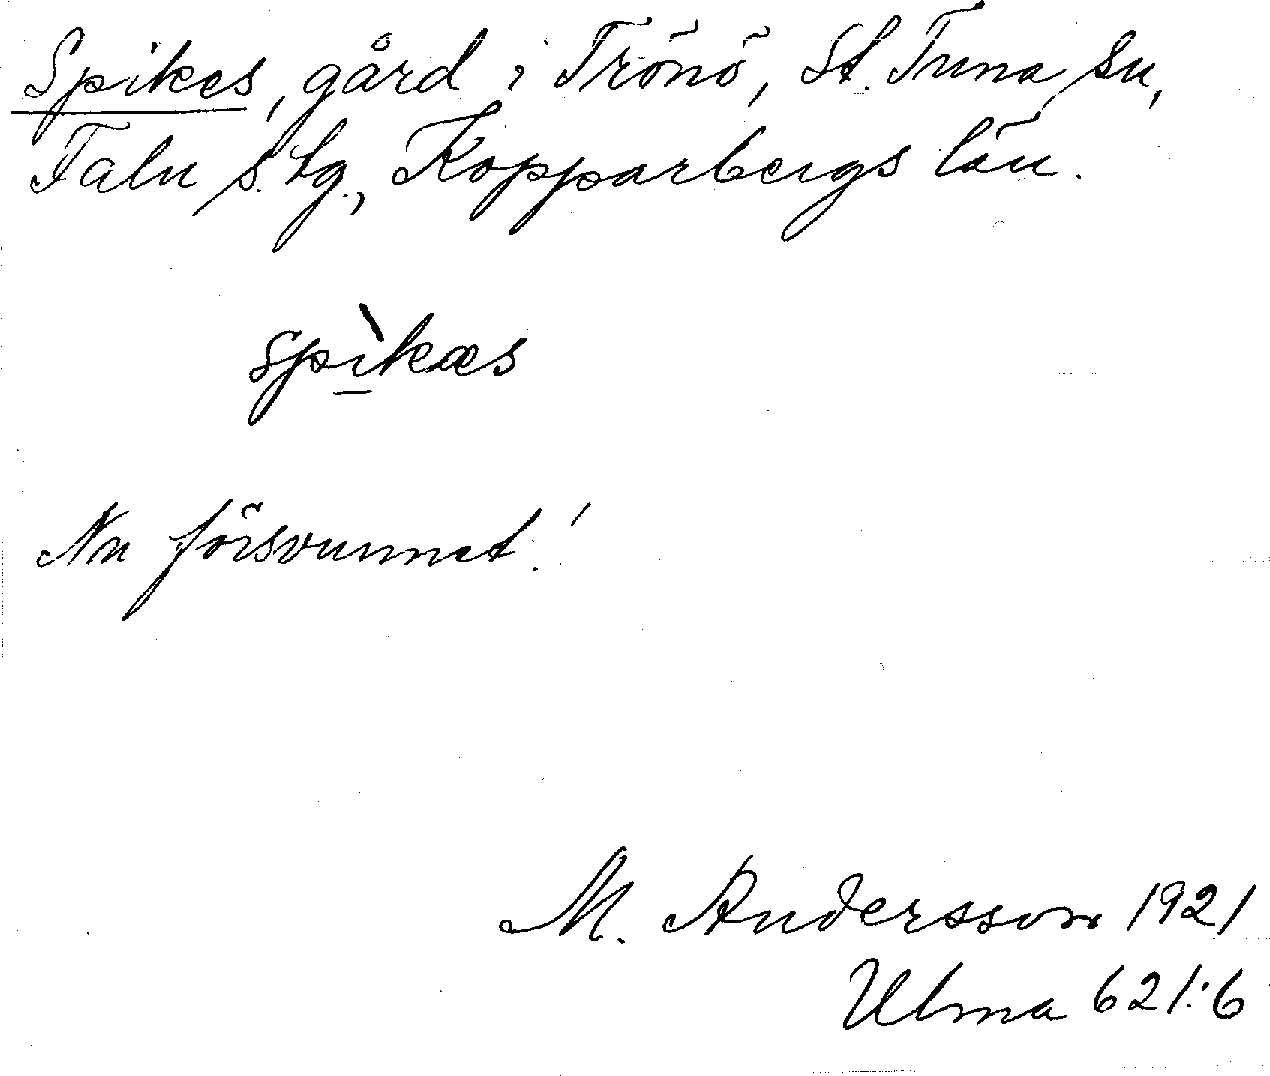 Spikes, gård i Trönö, St. Tuna sn,
Falu s. lg., Kopparbergs län.
spı̀kæs
Nu försvunnet!
M. Andersson 1921
Ulma 621:6